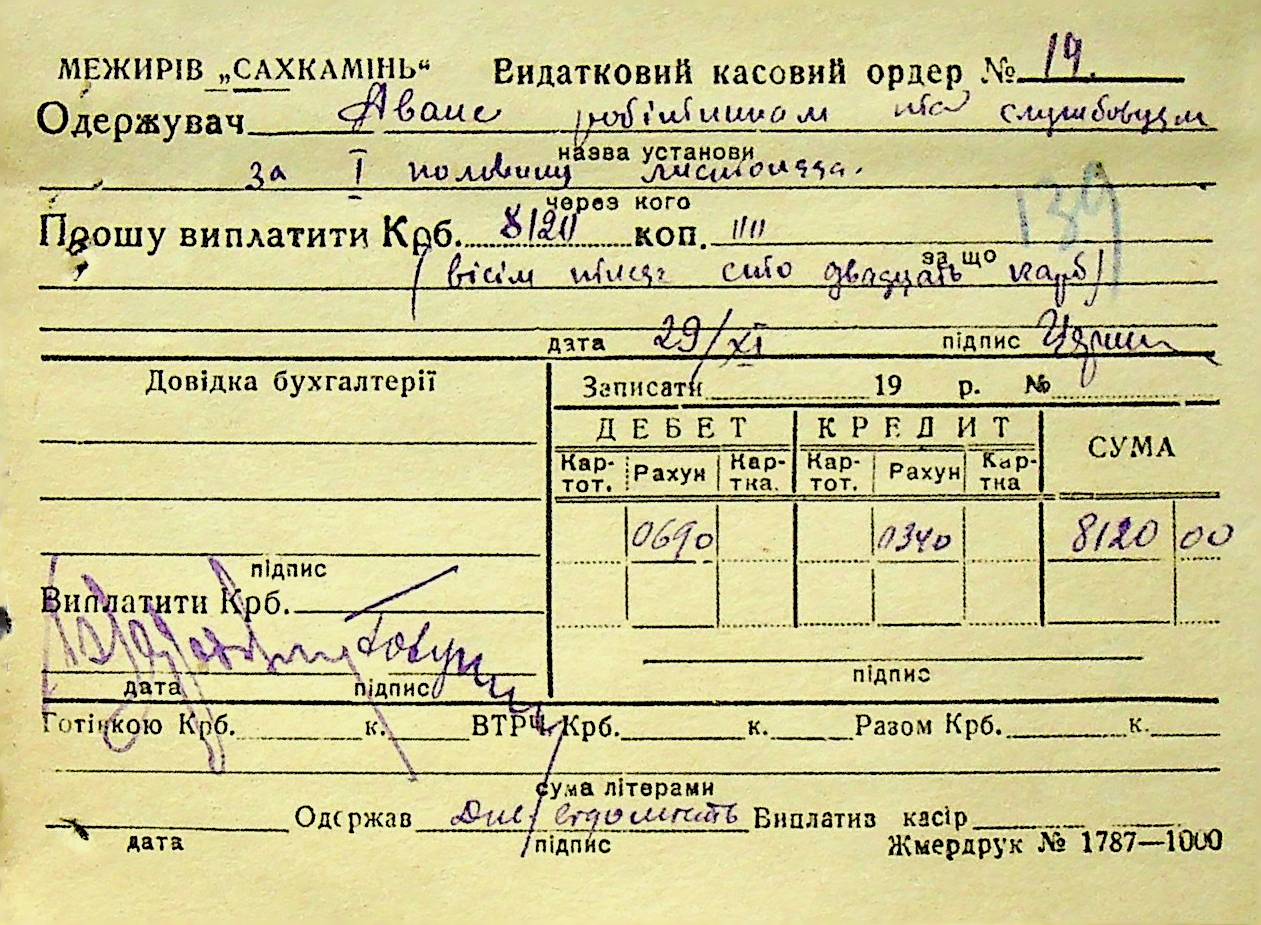 МЕЖИРІВ „САХКАМІНЬ“ Видатковий касовий ордер № 19.
Одержувач Аванс робітникам та службовцям
назва установи
за І половину листопада.
через кого
Прошу виплатити Крб. 8120 коп. """
139
за що
(вісім тисяч сто двадцать карб)
дата 29/XI підпис
Довідка бухгалтерії
Записати 19 р. №
ДЕБЕТ КРЕДИТ СУМА
Кар-тот. Рахун Кар-тка. Кар-тот. Рахун Кар-тка
0690 0340 8120 00
підпис
Виплатити Крб.
дата підпис
підпис
Готівкою Крб. к. ВТРЧ. Крб. к. Разом Крб. к.
сума літерами
Одержав Див відомість Виплатив касір
дата підпис Жмердрук № 1787—1000